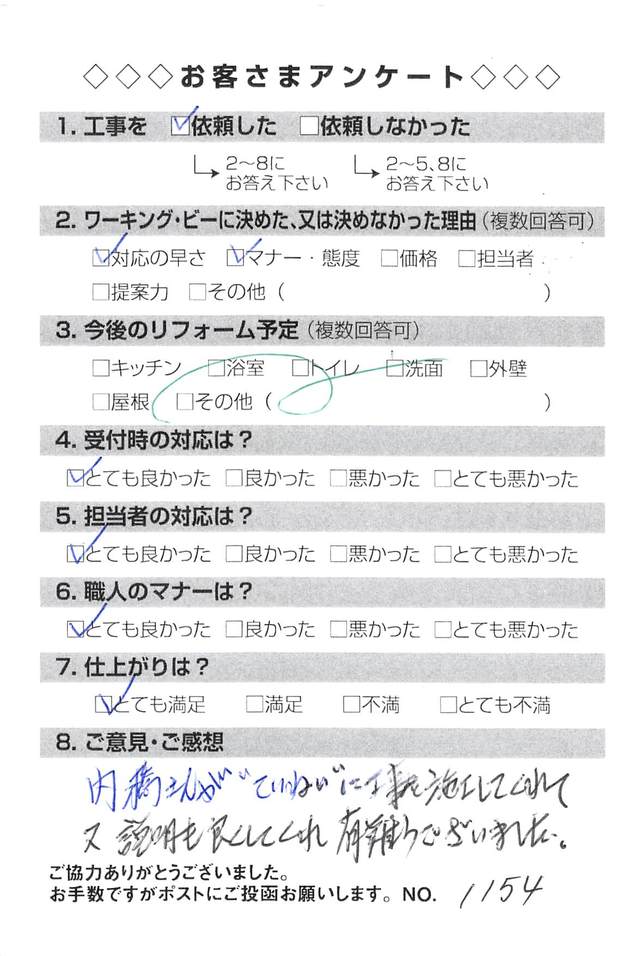 ◇◇◇お客さまアンケート◇◇◇
1. 工事を ☑依頼した □依頼しなかった
2〜8に
お答え下さい
2〜5、8に
お答え下さい
2. ワーキング・ビーに決めた、又は決めなかった理由(複数回答可)
☑対応の早さ ☑マナー・態度 □価格 □担当者
□提案力 □その他( )
3. 今後のリフォーム予定(複数回答可)
□キッチン □浴室 □トイレ □洗面 □外壁
□屋根 □その他( )
4. 受付時の対応は?
☑とても良かった □良かった □悪かった □とても悪かった
5. 担当者の対応は?
☑とても良かった □良かった □悪かった □とても悪かった
6. 職人のマナーは?
☑とても良かった □良かった □悪かった □とても悪かった
7. 仕上がりは?
☑とても満足 □満足 □不満 □とても不満
8. ご意見・ご感想
内橋さんが"ていねい"に工事を施工してくれて
又説明も良くしてくれ有難うございました。
ご協力ありがとうございました。
お手数ですがポストにご投函お願いします。 NO. 1154